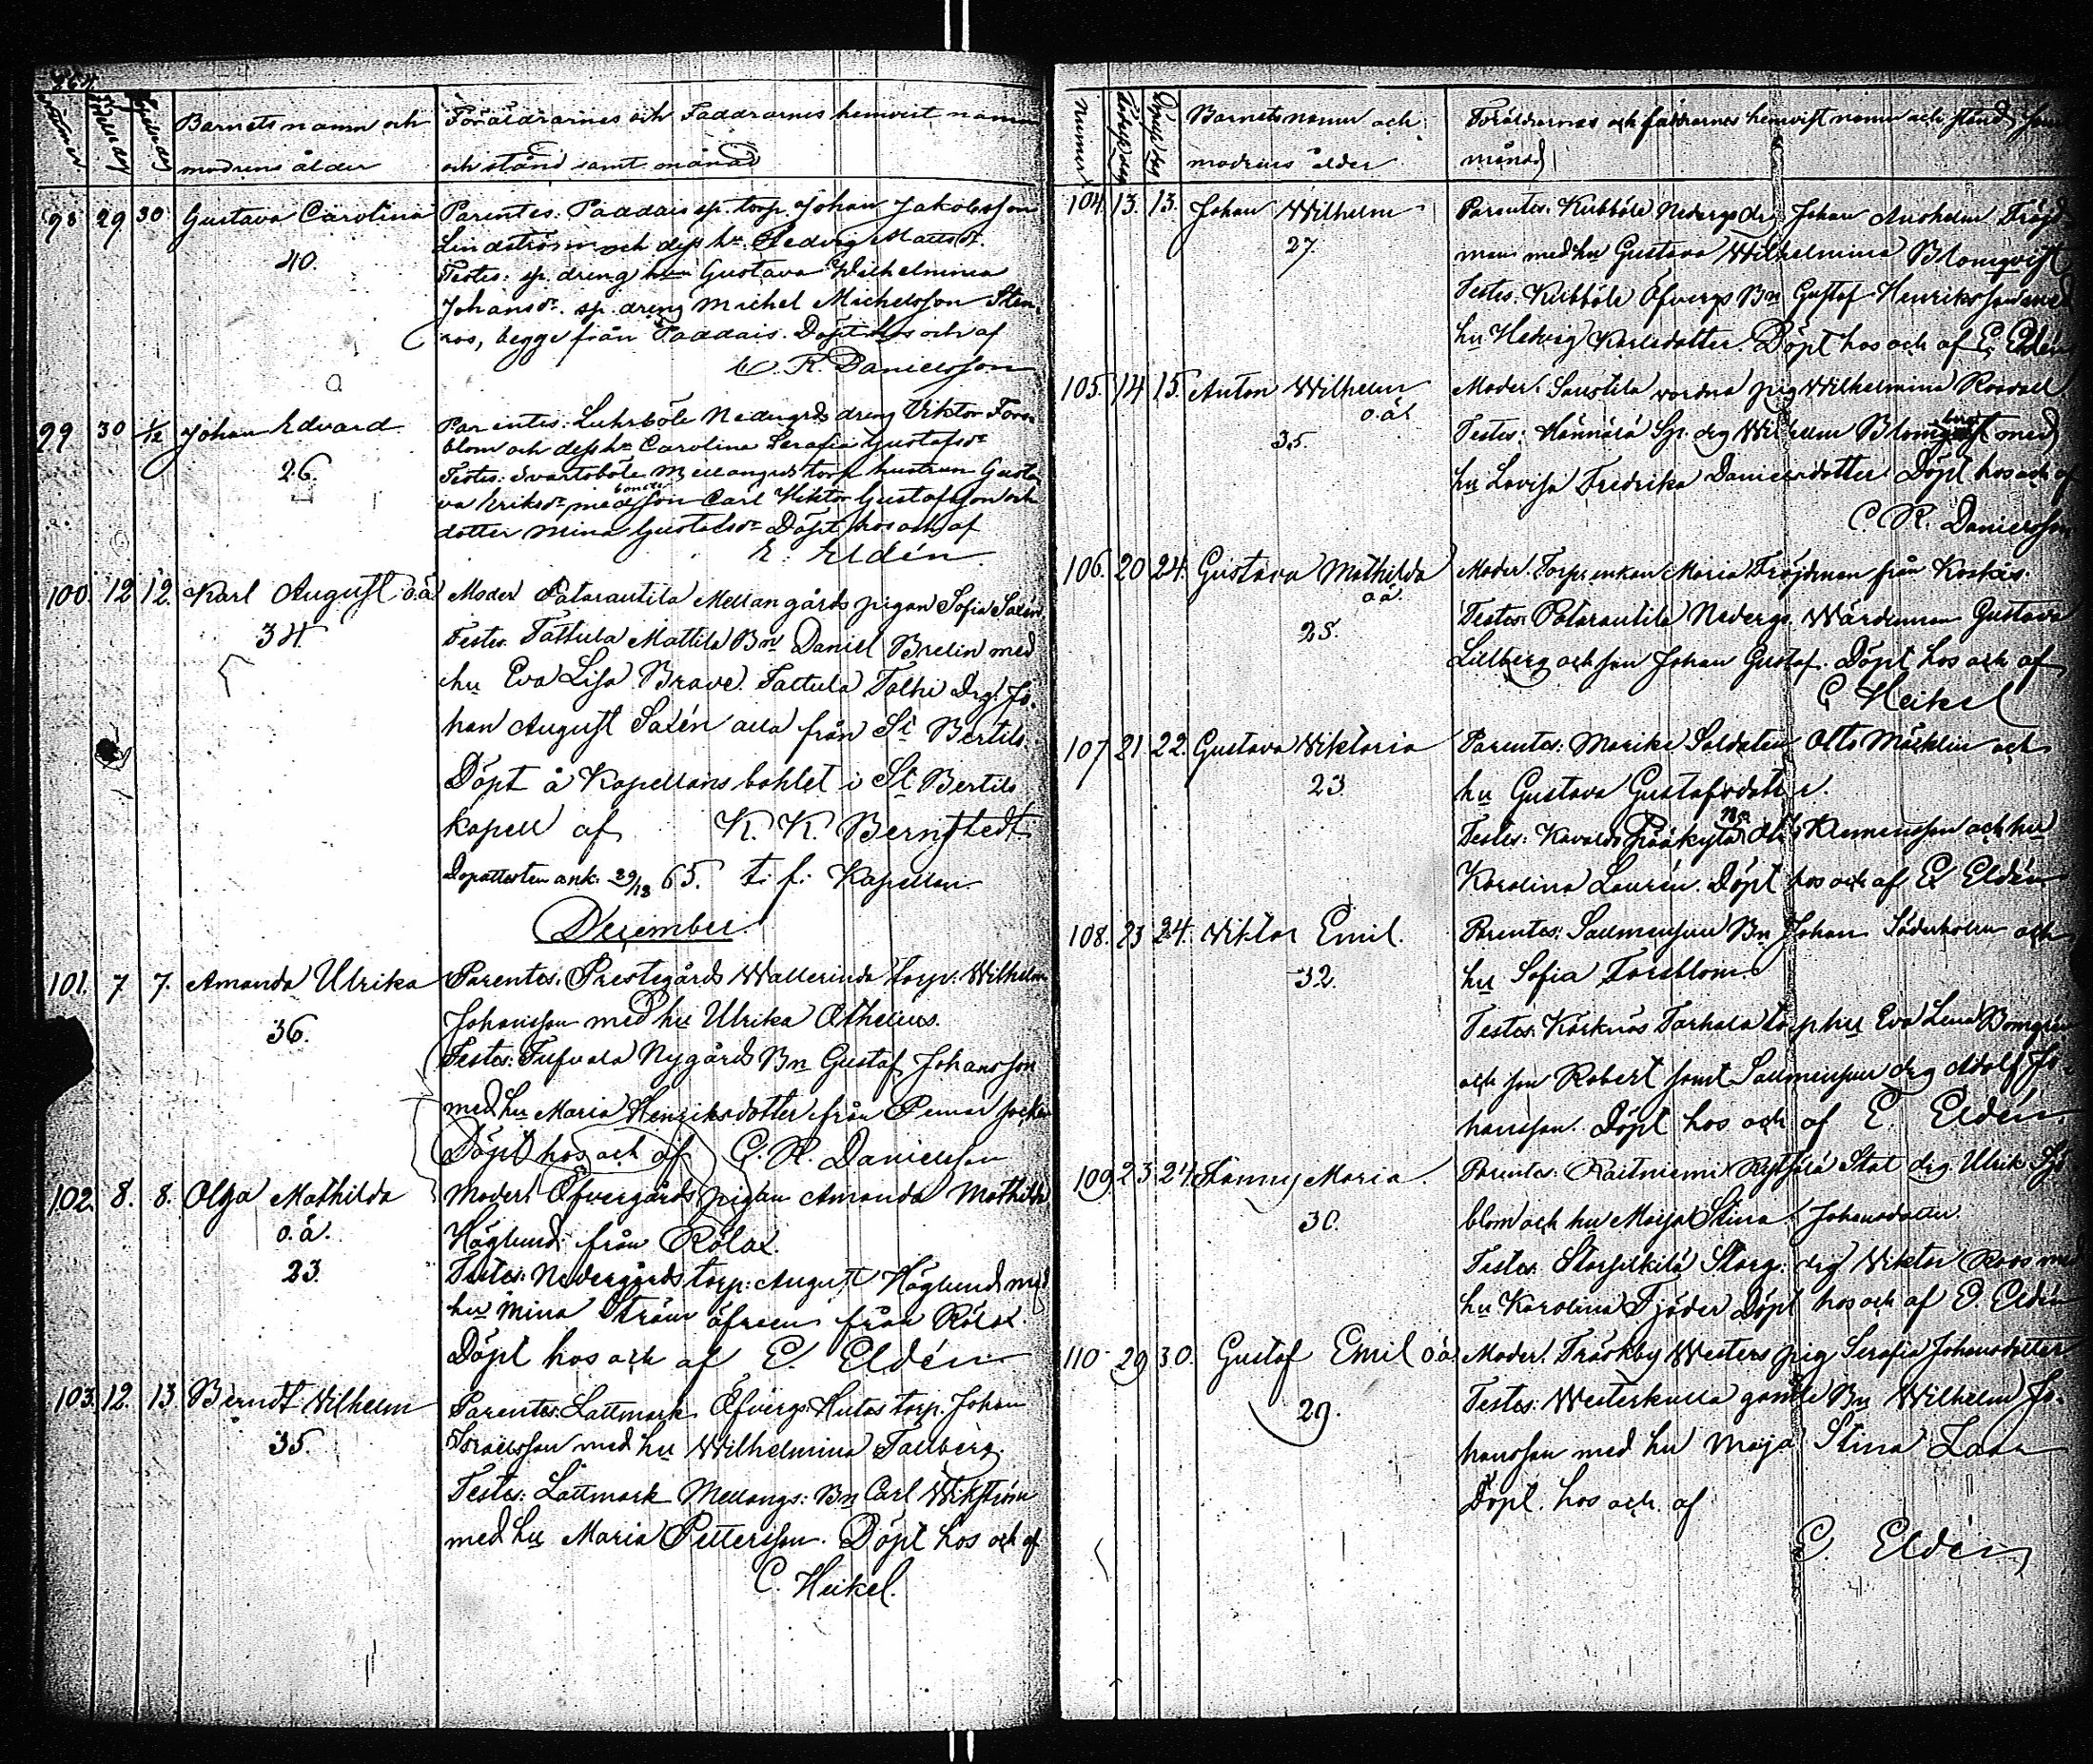 Nummer Födelsedag Döpelsedag Barnets namn och Föräldrarnes och Faddrarnes hemvist namn
modrens ålder och stånd samt månad
98 29 30 Gustava Carolina Parentes: Paddais sp. torp. Johan Jakobsson
Lindström och dess hu. Hedvig Mattsdr.
40. Testes: sp. dreng hu Gustava Wilhelmina
Johansdr. sp. dreng Michel Michelsson Sten-
ros, begge från Paddais. Döpt hos och af
C. R. Danielsson
99 30 1/12 Johan Edvard. Parentes: Luhrböle Nedergrds dreng Viktor Fors-
blom och dess hu Carolina Serafia Gustafsdr
26. Testes: Svartsböle Mellangrds torp. hustrun Gusta
va Eriksdr med bonde son Carl Viktor Gustafsson och
dotter Mina Gustafsdr Döpt hos och af
E. Eldén.
100. 12 12. Karl August o.ä Moder Patarautila Mellangårds pigan Sofia Salén
34. Testes. Tattula Mattila Bn Daniel Brelin med
hu Eva Lisa Brave. Tattula Talhi Drg. Jo-
han August Salén alla från St Bertils.
Döpt å Kapellans bohlet i St Bertils
kapell af K. K. Bernstedt
Dopattesten ank. 29/12 65. t. f. Kapellan
December.
101. 7 7. Amanda Ulrika Parentes: Prestegårds Wallerinda torp. Wilhelm
Johansson med hu Ulrika Othelius.
36. Testes: Tufvala Nygårds Bn Gustaf Johansson
med hu Maria Henriksdotter från Pemar socken
Döpt hos och af C. R. Danielsson
102. 8. 8. Olga Mathilda Moder: Öfvergårds pigan Amanda Mathilda
o.ä. Höglund från Rölax.
23. Testes: Nedergårds torp: August Höglund med
hu Mina Ström äfven från Rölax.
Döpt hos och af E. Eldén
103. 12. 13 Berndt Wilhelm Parentes: Lattmark Öfvergs. Hutas torp. Johan
35. Israelsson med hu Wilhelmina Tallberg.
Testes: Lattmark Mellangs: Bn Carl Wikström
med hu Maria Pettersson. Döpt hos och af
C. Heikel.
Nummer Födelsedag Döpelsedag Barnets namn och Föräldrarnas och faddrarnes hemvist namn och stånd, samt
modrens ålder månad
104. 13. 13. Johan Wilhelm Parentes: Kubböle Nedergs drg Johan Anshelm Fröjd-
27. man med hu Gustava Wilhelmina Blomqvist
Testes. Kubböle Öfvergs Bn Gustaf Henriksson med
hu Hedvig Karlsdotter. Döpt hos och af E. Eldén
105. 14 15. Anton Wilhelm Moder: Saustila vordna pig Wilhelmina Rosvall
o.ä.
35. Testes: Hännälä Sp. drg Wilhelm Blomqvist med
hu Lovisa Fredrika Danielsdotter Döpt hos och af
C. R. Danielsson
106. 20 24. Gustava Mathilda Moder. Torp.enkan Maria Fröjdman från Koskis.
o.ä.
25. Testes: Patarautila Nedergs. Wärdinnan Gustava
Lillberg och son Johan Gustaf. Döpt hos och af
C Heikel
107 21 22. Gustava Viktoria Parentes: Marike Soldaten Otto Mäcklin och
23 hu Gustava Gustafsdotter.
Testes: Kavaldo Präkylä Klemensson och hu
Karolina Laurén. Döpt hos och af E. Eldén
108. 23 24. Viktor Emil. Parentes: Salmensuu Bn Johan Söderholm och
32. hu Sofia Forsblom.
Testes. Karknäs Tarhala torp hu Eva Lena Blomgren
och son Robert samt Salmensuu drg Adolf Jo-
hansson. Döpt hos och af E. Eldén
109. 23. 24. Fanny Maria. Parentes: Raitniemi Rytsälä Stat drg Ulrik Sjö
30. blom och hu Maja Stina Johansdotter.
Testes: Storfilkilä Storg. drg Viktor Roos med
hu Karolina Fjäder Döpt hos och af E. Eldén
110 29 30. Gustaf Emil o.ä. Moder. Träskby Westers pig Serafia Johansdotter
29. Testes: Westerkulla gamle Bn Wilhelm Jo-
hansson med hu Maja Stina Laan
Döpt. hos och af
E. Eldén